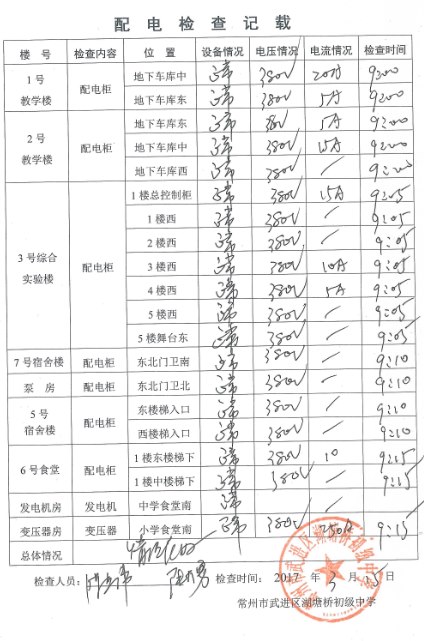 配电检查记载
楼号 检查内容 位置 设备情况 电压情况 电流情况 检查时间
1号教学楼 配电柜 地下车库中 正常 380V 20A 9:00
地下车库东 正常 380V 5A 9:00
2号教学楼 配电柜 地下车库东 正常 380V 5A 9:00
地下车库中 正常 380V 15A 9:00
地下车库西 正常 380V / 9:00
3号综合实验楼 配电柜 1楼总控制柜 正常 380V 15A 9:05
1楼西 正常 380V / 9:05
2楼西 正常 380V / 9:05
3楼西 正常 380V 10A 9:05
4楼西 正常 380V 5A 9:05
5楼西 正常 380V / 9:05
5楼舞台东 正常 380V / 9:05
7号宿舍楼 配电柜 东北门卫南 正常 380V / 9:10
泵房 配电柜 东北门卫北 正常 380V / 9:10
5号宿舍楼 配电柜 东楼梯入口 正常 380V / 9:10
西楼梯入口 正常 380V / 9:10
6号食堂 配电柜 1楼东楼梯下 正常 380V 10 9:15
1楼中楼梯下 正常 380V / 9:15
发电机房 发电机 中学食堂南 正常 /
变压器房 变压器 小学食堂南 正常 380V 9:15
总体情况
检查人员： 检查时间： 2017年3月15日
常州市武进区湖塘桥初级中学